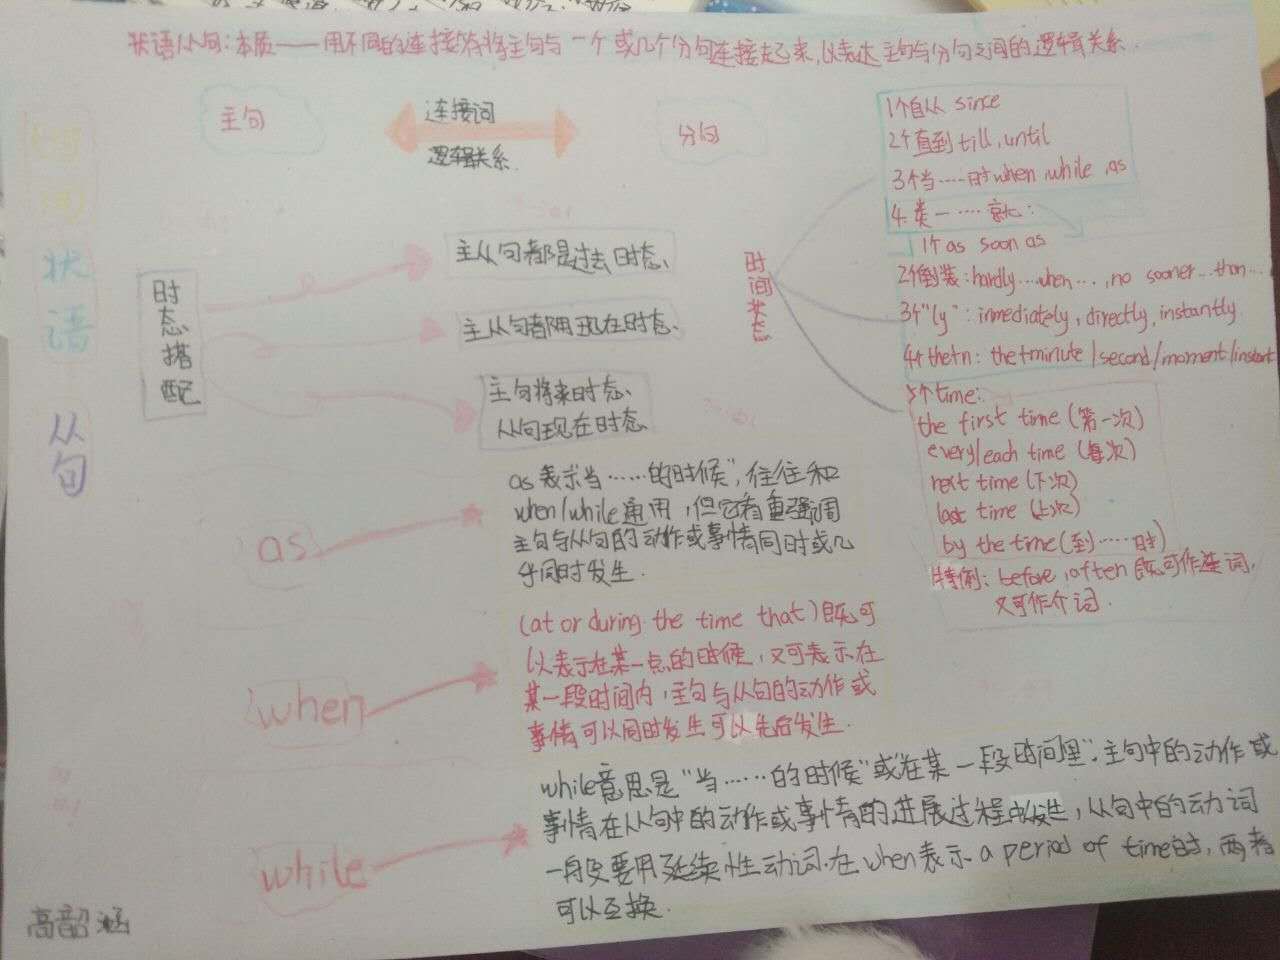 状语从句:本质——用不同的连接符将主句与一个或几个分句连接起来,以表达主句与分句之间的逻辑关系.
主句
连接词
逻辑关系.
分句
时间
状
语
从
句
时态搭配
主从句都是过去时态、
主从句都用现在时态、
主句将来时态、
从句现在时态
时间状态
1个自从 since
2个直到 till, until
3个当……时 when, while, as
4类一……就:
1个 as soon as
2个倒装: hardly…when…, no sooner…than…
3个"ly": immediately, directly, instantly
4个the+n: the+minute/second/moment/instant
5个time:
the first time (第一次)
every/each time (每次)
next time (下次)
last time (上次)
by the time (到……时)
特例: before, after 既可作连词,
又可作介词.
as
as表示当……的时候",往往和
when/while通用,但它着重强调
主句与从句的动作或事情同时或几
乎同时发生.
when
(at or during the time that)既可
以表示在某一点的时候,又可表示在
某一段时间内,主句与从句的动作或
事情可以同时发生可以先后发生.
while
while意思是"当……的时候"或"在某一段时间里".主句中的动作或
事情在从句中的动作或事情的进展过程中发生,从句中的动词
一般要用延续性动词.在when表示 a period of time时,两者
可以互换.
高韶涵